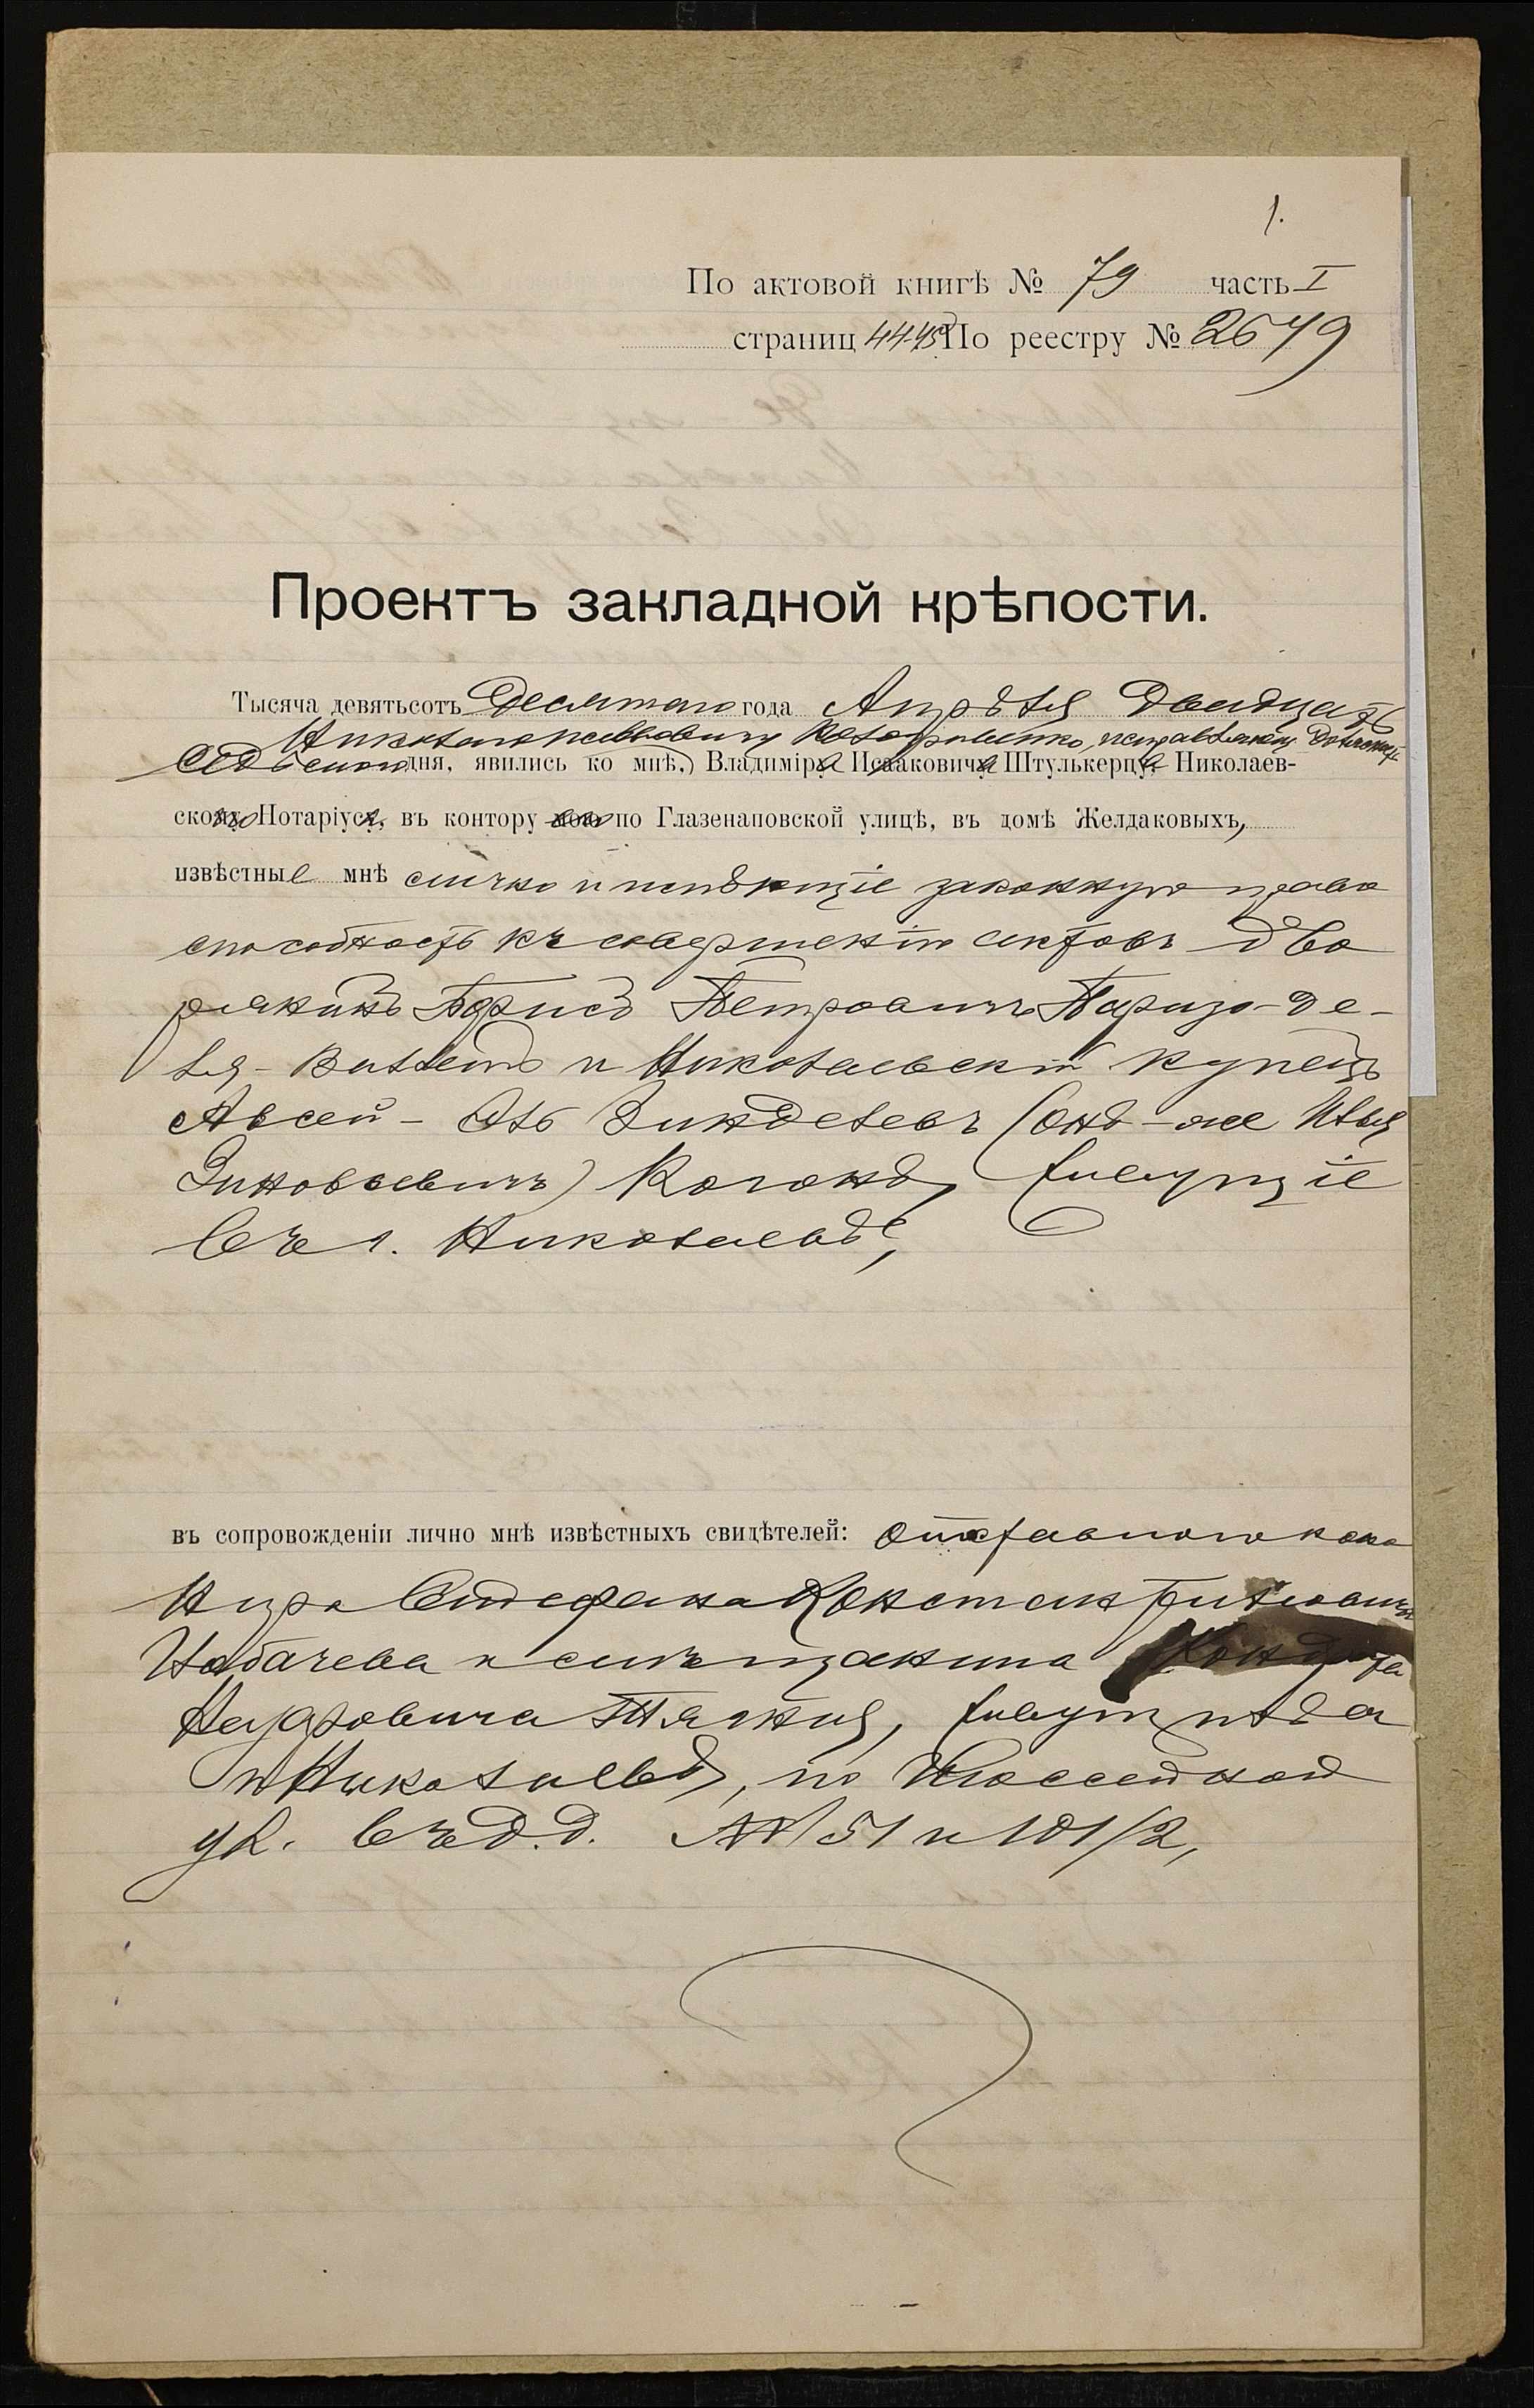 1.
По актовой книгѣ № 79 часть I
страниц 44-45 По реестру № 2679
Проектъ закладной крѣпости.
Тысяча девятьсотъ Десятаго года Апрѣля Двадцать
Николаю исправляющему Должность
седьмого дня, явились ко мнѣ, Владиміра Исааковича Штулькерца, Николаев-
скаго Нотаріуса, въ контору его по Глазенаповской улицѣ, въ домѣ Желдаковыхъ,
извѣстные мнѣ лично и имѣющіе законную право
способность къ совершенію актовъ дво
рянинъ Борисъ Петровичъ Паризо-де-
ля-Валетъ и Николаевскій купецъ
Авсей-Эль Зинделевъ (онъ-же Илья
Зиновьевичъ) Когонъ, живущіе
въ г. Николаевѣ,
въ сопровожденіи лично мнѣ извѣстныхъ свидѣтелей: Отставного кано
нира Стефана Константиновича
и мѣщанина Кондрата
живущихъ
въ Николаевѣ, по Шоссейной
ул. въ д.д. №№ 51 и 101/2,